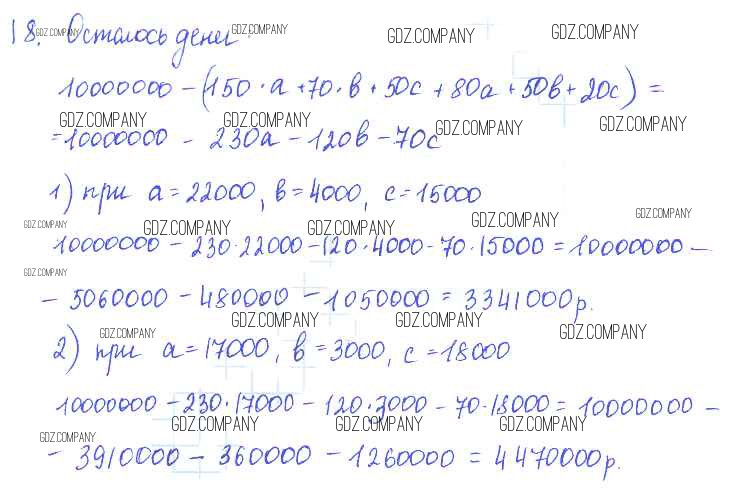 18. Осталось денег: GDZ.COMPANY GDZ.COMPANY GDZ.COMPANY GDZ.COMPANY
10000000 - (150·a + 70·в + 50c + 80a + 50в + 20c) =
GDZ.COMPANY GDZ.COMPANY GDZ.COMPANY GDZ.COMPANY
= 10000000 - 230a - 120в - 70c
1) при a = 22000, в = 4000, c = 15000
GDZ.COMPANY GDZ.COMPANY GDZ.COMPANY GDZ.COMPANY GDZ.COMPANY
10000000 - 230·22000 - 120·4000 - 70·15000 = 10000000 -
GDZ.COMPANY
- 5060000 - 480000 - 1050000 = 3341000р.
GDZ.COMPANY GDZ.COMPANY GDZ.COMPANY GDZ.COMPANY
2) при a = 17000, в = 3000, c = 18000
10000000 - 230·17000 - 120·3000 - 70·18000 = 10000000 -
GDZ.COMPANY GDZ.COMPANY GDZ.COMPANY GDZ.COMPANY
- 3910000 - 360000 - 1260000 = 4470000р.